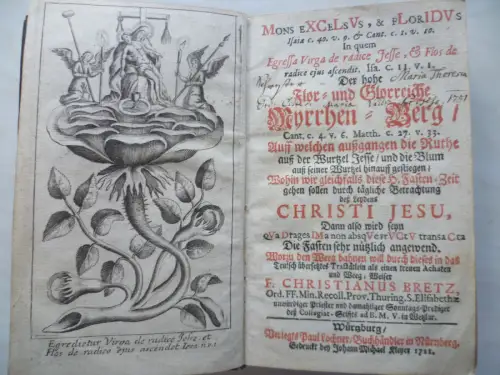 Egredietur Virga de radice Jesse, et
Flos de radice ejus ascendet Isai. 11. v. 1.
MONS EXCELSVS, & FLORIDVS
Isaiæ c. 40. v. 9. & Cant. c. 2. v. 12.
In quem
Egressa Virga de radice Jesse, & Flos de
radice ejus ascendit. Isa. c. 11. v. 1.
Der hohe
Maria Theresia
Flor- und Glorreiche
1791
Myrrhen-Berg/
Cant. c. 4. v. 6. Matth. c. 27. v. 33.
Auff welchen außgangen die Ruthe
auß der Wurtzel Jesse/ und die Blum
auß seiner Wurtzel hinauff gestiegen/
Wohin wir gleichfalls diese H. Fasten-Zeit
gehen sollen durch tägliche Betrachtung
deß Leydens
CHRISTI JESU,
Dann also wird seyn
qVaDragesIMa non absqVe frVCtV transaCta
Die Fasten sehr nützlich angewend.
Worzu den Weeg bahnen will durch dieses in das
Teutsch übersetztes Tractätlein als einen treuen Achaten
und Weeg-Weiser
F. CHRISTIANUS BRETZ,
Ord. FF. Min. Recoll. Prov. Thuring. S. Elisabethæ
unwürdiger Priester und damahliger Sonntags-Prediger
deß Collegiat-Stiffts ad B. M. V. in Wetzlar.
Würtzburg/
Verlegts Paul Lochner/ Buchhändler in Nürnberg.
Gedruckt bey Johann Michael Kleyer 1722.